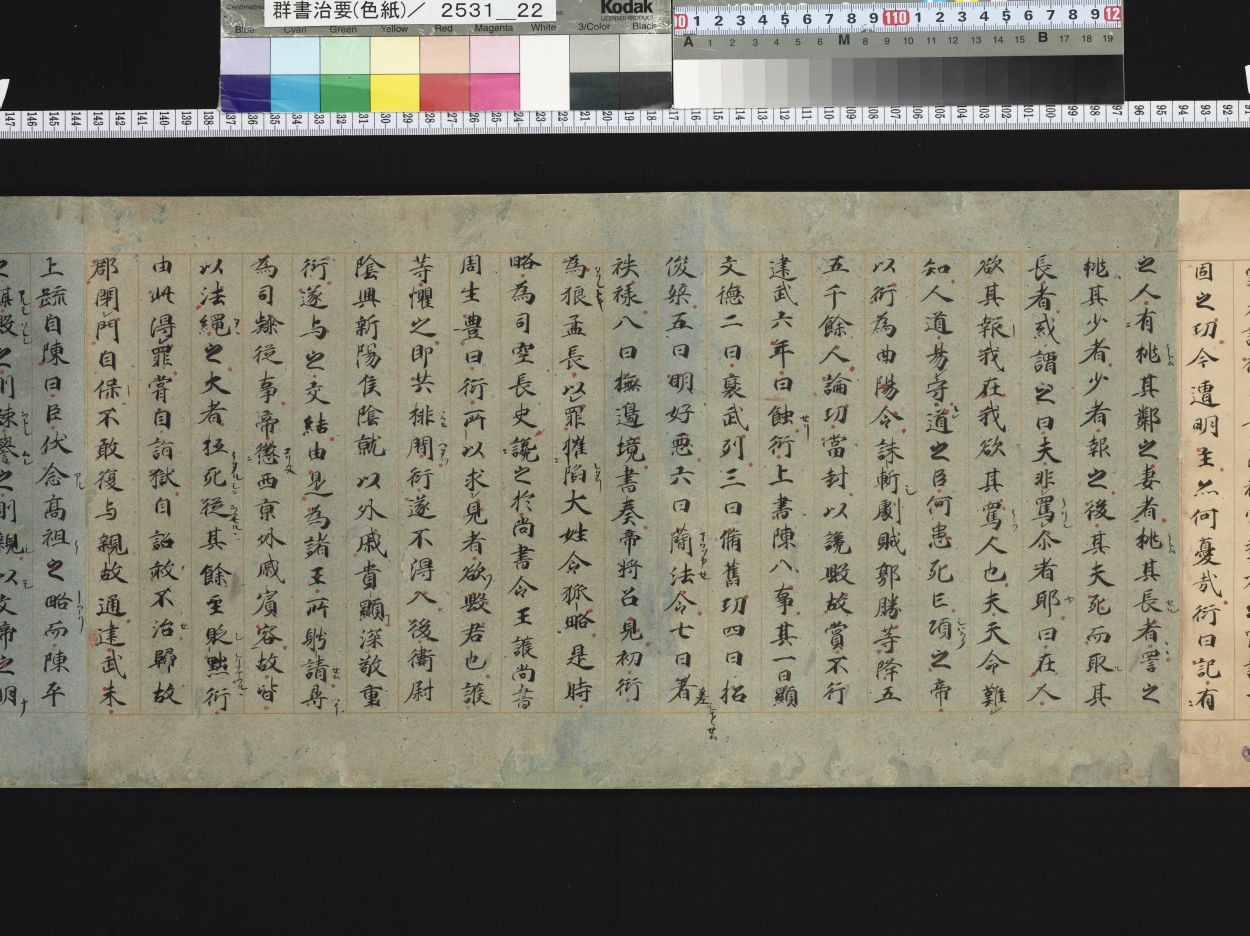 群書治要(色紙)／ 2531__22
Kodak
LICENSED PRODUCT
Centimetres
Blue Cyan Green Yellow Red Magenta White 3/Color Black
固之功今遭明主亦何憂哉衍曰記有
之人有桃其鄰之妻者桃其長者詈之
桃其少者少者報之後其夫死而取其
長者或謂之曰夫非罵尒者耶曰在人
欲其報我在我欲其罵人也夫天命難
知人道易守道之臣何患死亡頃之帝
以衍為曲陽令誅斬劇賊郭勝等降五
五千餘人論功當封以讒毀故賞不行
建武六年日蝕衍上書陳八事其一曰顯
文德二曰襃武烈三曰備舊功四曰招
俊桀五曰明好惡六曰簡法令七曰著
秩祿八曰撫邊境書奏帝將召見初衍
為狼孟長以罪摧陷大姓令狐略是時
略為司空長史讒之於尚書令王護尚書
周生豊曰衍所以求見者欲毀君也護
等懼之即共排間衍遂不得入後衛尉
陰興新陽侯陰就以外戚貴顯深敬重
衍遂与之交結由是為諸王所聘請尋
為司隸從事帝懲西京外戚賓客故皆
以法繩之大者抵死從其餘至貶黜衍
由此得罪嘗自詣獄自詔赦不治歸故
郡閉門自保不敢復与親故通建武末
上疏自陳曰臣伏念高祖之略而陳平
之謀毀之則疎譽之則親以文帝之明